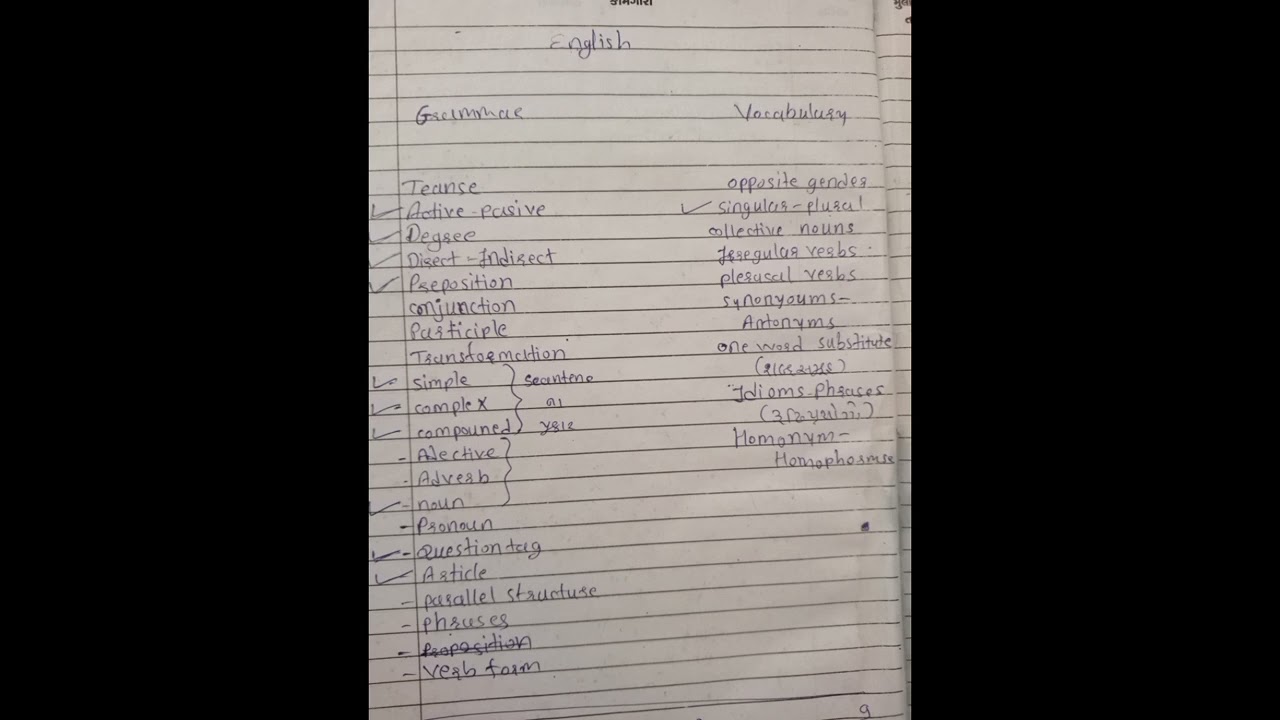 કામગીરી
English
Grammae Vocabulary
Teanse opposite gender
Active-pasive singular-plural
Degree collective nouns
Direct-Indirect Irregular verbs
Preposition plerusal verbs
conjunction synonyoums-
Participle Antonyms
Transformation one word substitute
simple seantene (શબ્દસમૂહ)
complex ના Idioms-Phrases
compouned પ્રકાર (રૂઢિપ્રયોગો)
Adective Homonym-
- Adverb Homophormse
- noun
- Pronoun
- Question tag
Article
- parallel structure
- phrases
- Proposition
- Verb form
9